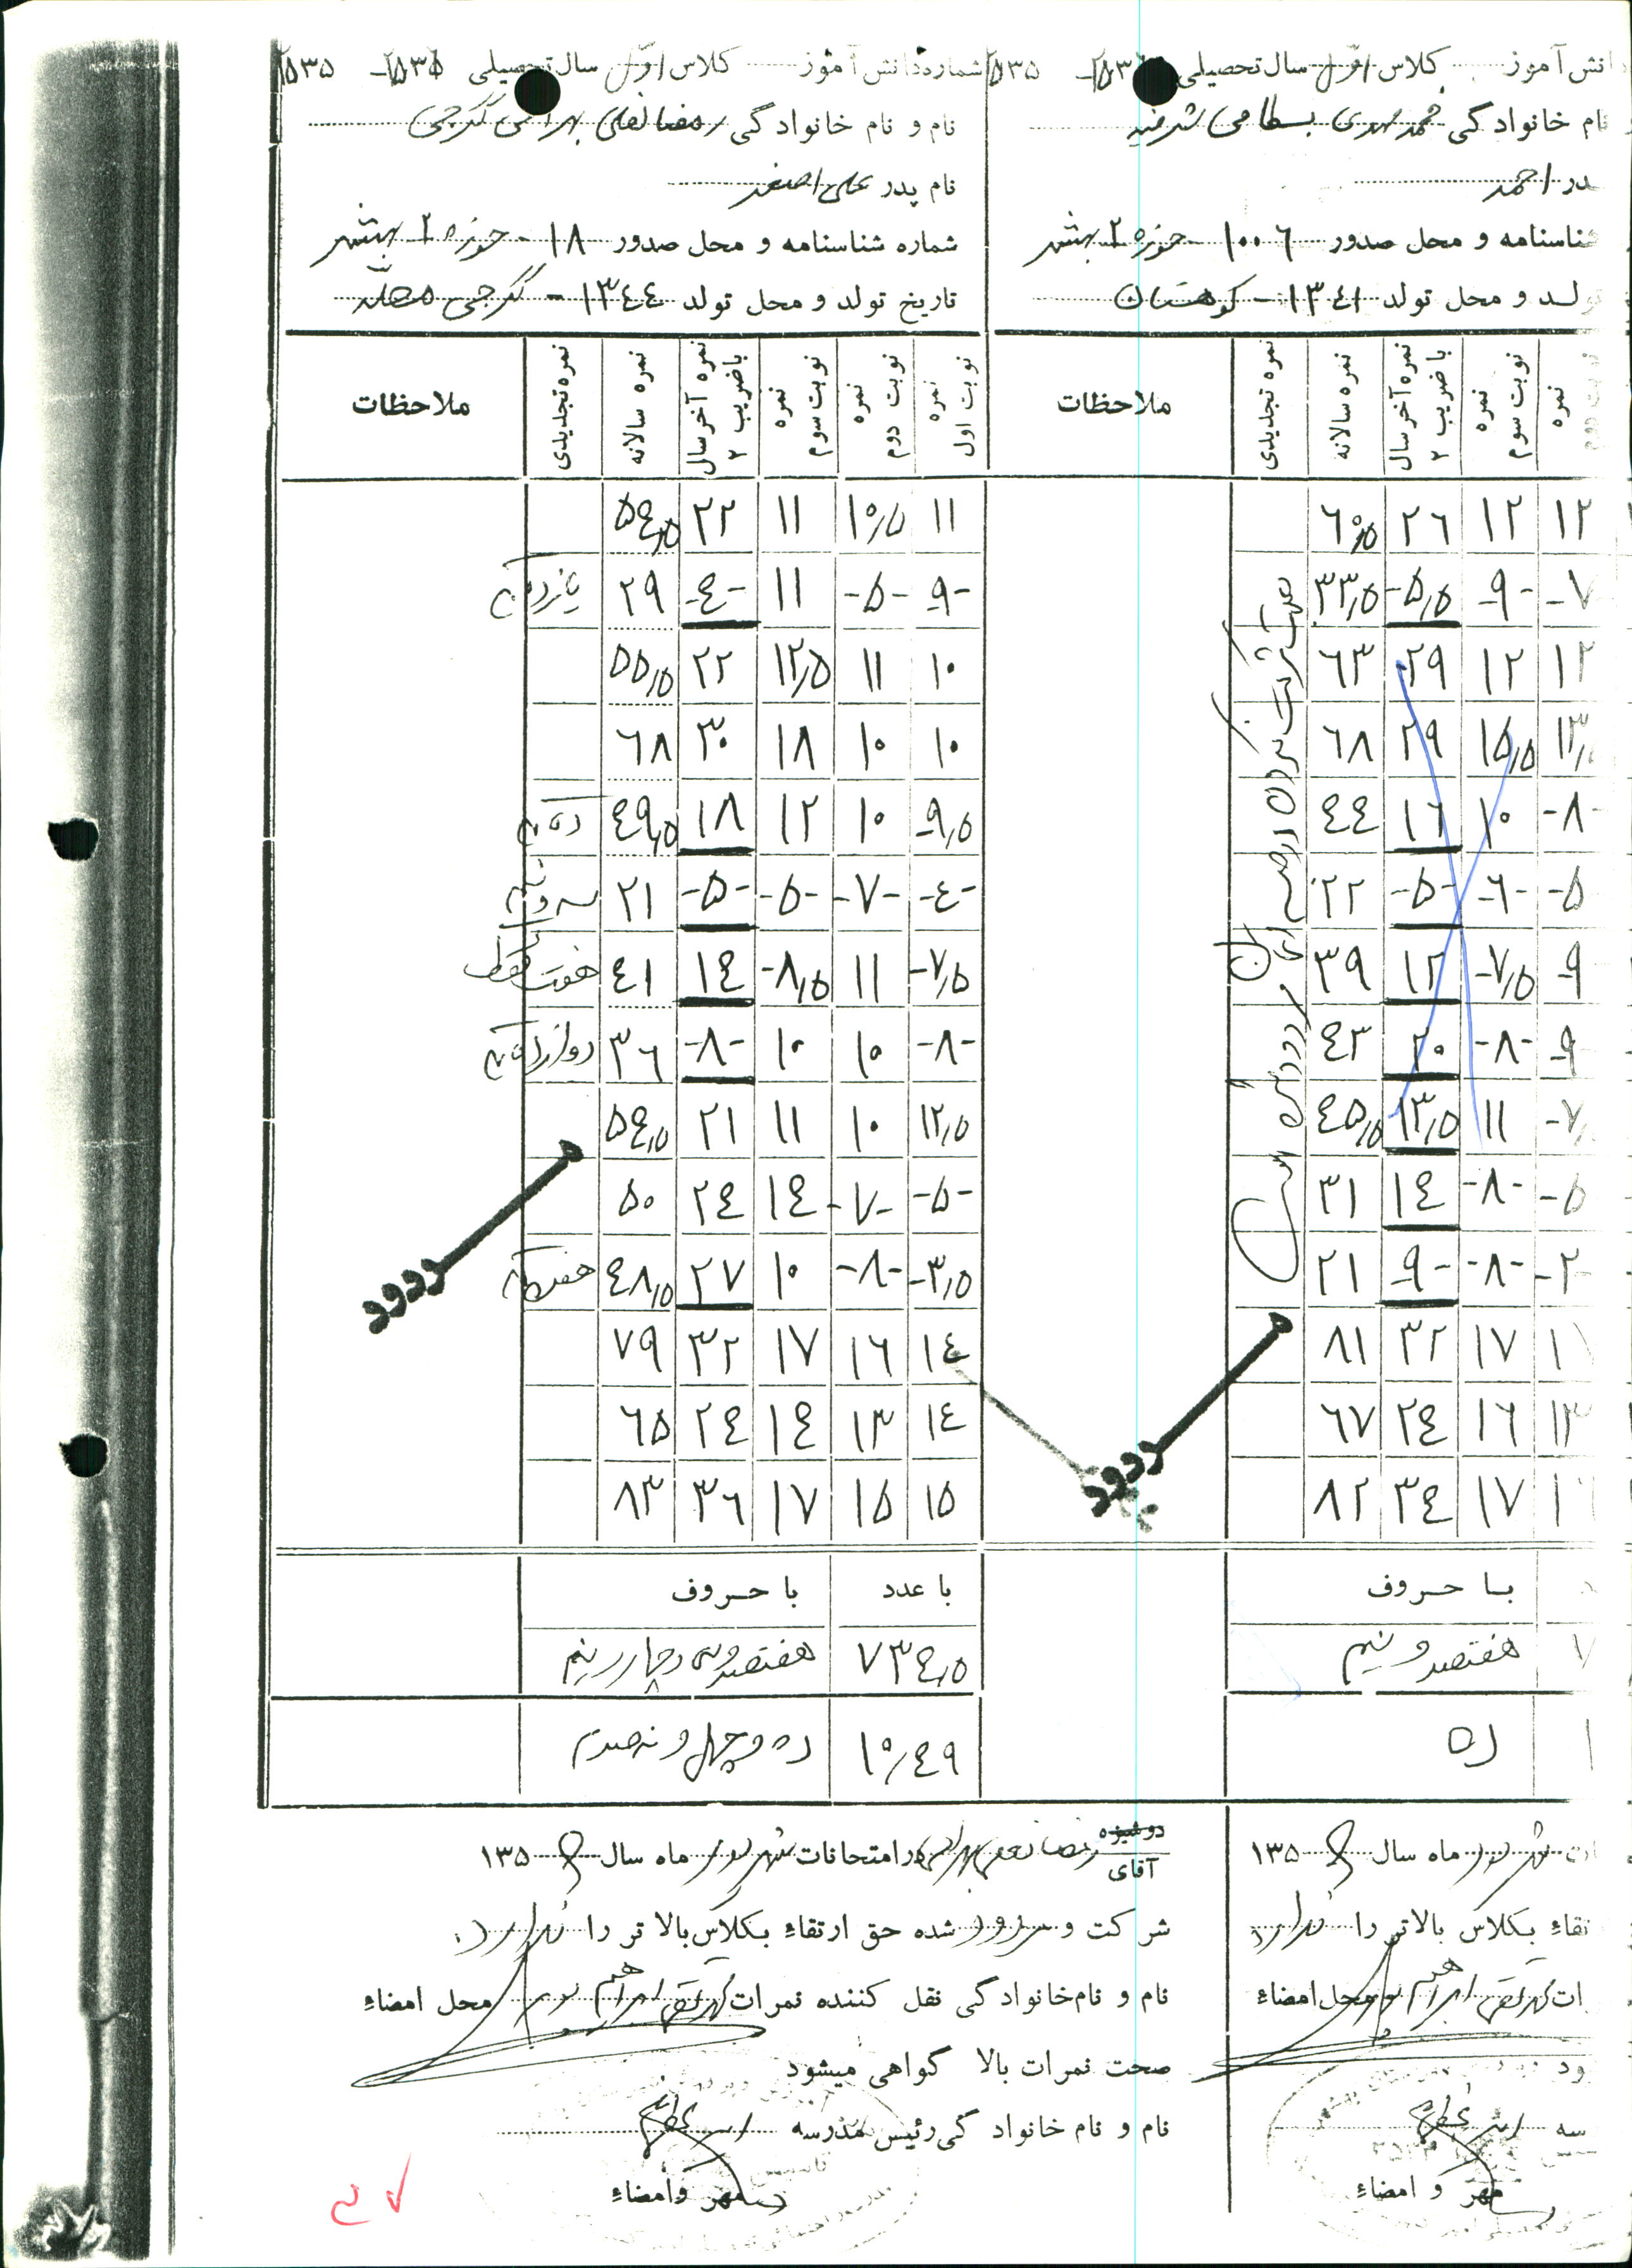 دانش آموز ... کلاس اول سال تحصیلی ۲۵۳۵ - ۲۵۳۴
نام خانوادگی محمد مهدی بسطامی
پدر احمد
شناسنامه و محل صدور ۱۰۰۶ - حوزه ۲ بهشهر
تولد و محل تولد ۱۳۴۱ - کوهستان
نمره نوبت دوم | نمره نوبت سوم | نمره آخر سال با ضریب ۲ | نمره سالانه | نمره تجدیدی | ملاحظات
۱۲ | ۱۲ | ۲۶ | ۶۰٫۵
-۷ | -۹- | -۵٫۵ | ۳۳٫۵
۱۲ | ۱۲ | ۲۹ | ۶۳
۱۳٫ | ۱۵٫۵ | ۲۹ | ۶۸
-۸- | ۱۰ | ۱۶ | ۴۴
-۵ | -۶- | -۵- | ۲۲
-۹ | -۷٫۵ | ۱۲ | ۳۹
-۹ | -۸- | ۲۰ | ۴۳
-۷٫ | ۱۱ | ۱۳٫۵ | ۴۵٫۵
-۵ | -۸- | ۱۴ | ۳۱
-۲- | -۸- | -۹- | ۲۱
۱ | ۱۷ | ۳۲ | ۸۱
۱۳ | ۱۶ | ۲۴ | ۶۷
۱ | ۱۷ | ۳۴ | ۸۲
بعلت شرکت نکردن در امتحان مردود شده است
مردود
با حروف
هفتصد و نیم
ده
شهریور ماه سال ۱۳۵
ارتقاء بکلاس بالاتر را ندارد
محل امضاء
مهر و امضاء
شماره دانش آموز ... کلاس اول سال تحصیلی ۲۵۳۵ - ۲۵۳۴
نام و نام خانوادگی رمضانعلی بهرامی گرجی
نام پدر علی اصغر
شماره شناسنامه و محل صدور ۱۸ - حوزه ۲ بهشهر
تاریخ تولد و محل تولد ۱۳۴۴ - گرجی محله
نمره نوبت اول | نمره نوبت دوم | نمره نوبت سوم | نمره آخر سال با ضریب ۲ | نمره سالانه | نمره تجدیدی | ملاحظات
۱۱ | ۱۰٫۵ | ۱۱ | ۲۲ | ۵۴٫۵
-۹- | -۵- | ۱۱ | -۴- | ۲۹
۱۰ | ۱۱ | ۱۲٫۵ | ۲۲ | ۵۵٫۵
۱۰ | ۱۰ | ۱۸ | ۳۰ | ۶۸
-۹٫۵ | ۱۰ | ۱۲ | ۱۸ | ۴۹٫۵
-۴- | -۷- | -۵- | -۵- | ۲۱
-۷٫۵ | ۱۱ | -۸٫۵ | ۱۴ | ۴۱ | هفت تمام
-۸- | ۱۰ | ۱۰ | -۸- | ۳۶ | دوازده تمام
۱۲٫۵ | ۱۰ | ۱۱ | ۲۱ | ۵۴٫۵
-۵- | -۷- | ۱۴ | ۲۴ | ۵۰
-۳٫۵ | -۸- | ۱۰ | ۲۷ | ۴۸٫۵
۱۴ | ۱۶ | ۱۷ | ۳۲ | ۷۹
۱۴ | ۱۳ | ۱۴ | ۲۴ | ۶۵
۱۵ | ۱۵ | ۱۷ | ۳۶ | ۸۳
مردود
با عدد | با حروف
۷۳۴٫۵ | هفتصد و سی و چهار و نیم
۱۰٫۴۹ | ده و چهل و نه صدم
دوشیزه
آقای رمضانعلی بهرامی در امتحانات شهریور ماه سال ۱۳۵
شرکت و مردود شده حق ارتقاء بکلاس بالاتر را ندارد
نام و نام خانوادگی نقل کننده نمرات ... محل امضاء
صحت نمرات بالا گواهی میشود
نام و نام خانوادگی رئیس مدرسه
مهر و امضاء